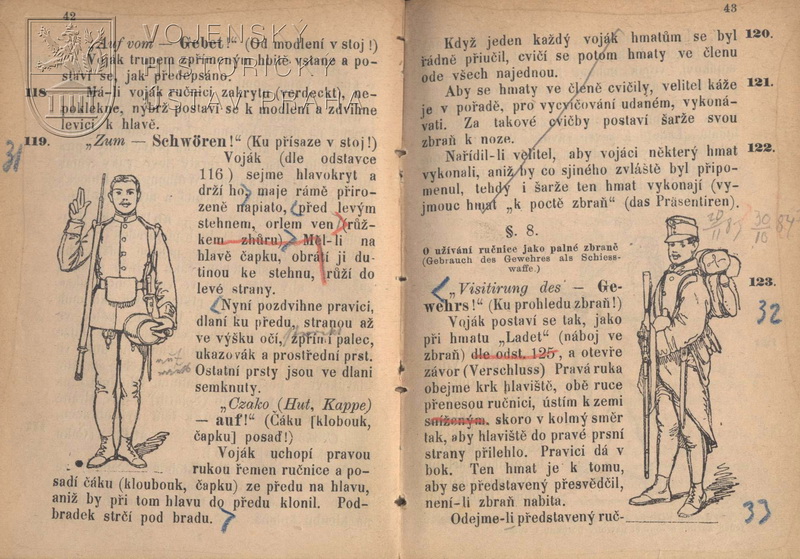 42
„Auf vom — Gebet!“ (Od modlení v stoj!)
Voják trupem zpřímeným hbitě vstane a po-
staví se, jak předepsáno.
118. Má-li voják ručnici zakrytu (verdeckt), ne-
poklekne, nýbrž postaví se k modlení a zdvihne
levici k hlavě.
119. „Zum — Schwören!“ (Ku přísaze v stoj!)
31
Voják (dle odstavce
116) sejme hlavokryt a
drží ho, maje rámě přiro-
zeně napiato, před levým
stehnem, orlem ven (růž-
kem vzhůru) Měl-li na
hlavě čapku, obrátí ji du-
tinou ke stehnu, růží do
levé strany.
Nyní pozdvihne pravici,
dlaní ku předu, stranou až
ve výšku očí, zpřímí palec,
ukazovák a prostřední prst.
Ostatní prsty jsou ve dlani
semknuty.
„Czako (Hut, Kappe)
— auf!“ (Čáku [klobouk,
čapku] posaď!)
Voják uchopí pravou
rukou řemen ručnice a po-
sadí čáku (kloubouk, čapku) ze předu na hlavu,
aniž by při tom hlavu do předu klonil. Pod-
bradek strčí pod bradu.
VOJENSKÝ
HISTORICKÝ
ÚSTAV PRAHA
43
Když jeden každý voják hmatům se byl 120.
řádně přiučil, cvičí se potom hmaty ve členu
ode všech najednou.
Aby se hmaty ve členě cvičily, velitel káže 121.
je v pořadě, pro vycvičování udaném, vykoná-
vati. Za takové cvičby postaví šarže svou
zbraň k noze.
Nařídil-li velitel, aby vojáci některý hmat 122.
vykonali, aniž by co sjiného zvláště byl připo-
menul, tehdy i šarže ten hmat vykonají (vy-
jmouc hmat „k poctě zbraň“ (das Präsentiren).
§. 8.
O užívání ručnice jako palné zbraně
(Gebrauch des Gewehres als Schiess-
waffe.)
„Visitirung des — Ge- 123.
wehrs!“ (Ku prohledu zbraň!)
32
Voják postaví se tak, jako
při hmatu „Ladet“ (náboj ve
zbraň) dle odst. 125, a otevře
závor (Verschluss) Pravá ruka
obejme krk hlaviště, obě ruce
přenesou ručnici, ústím k zemi
sníženým, skoro v kolmý směr
tak, aby hlaviště do pravé prsní
strany přilehlo. Pravici dá v
bok. Ten hmat je k tomu,
aby se představený přesvědčil,
není-li zbraň nabita.
33
Odejme-li představený ruč-